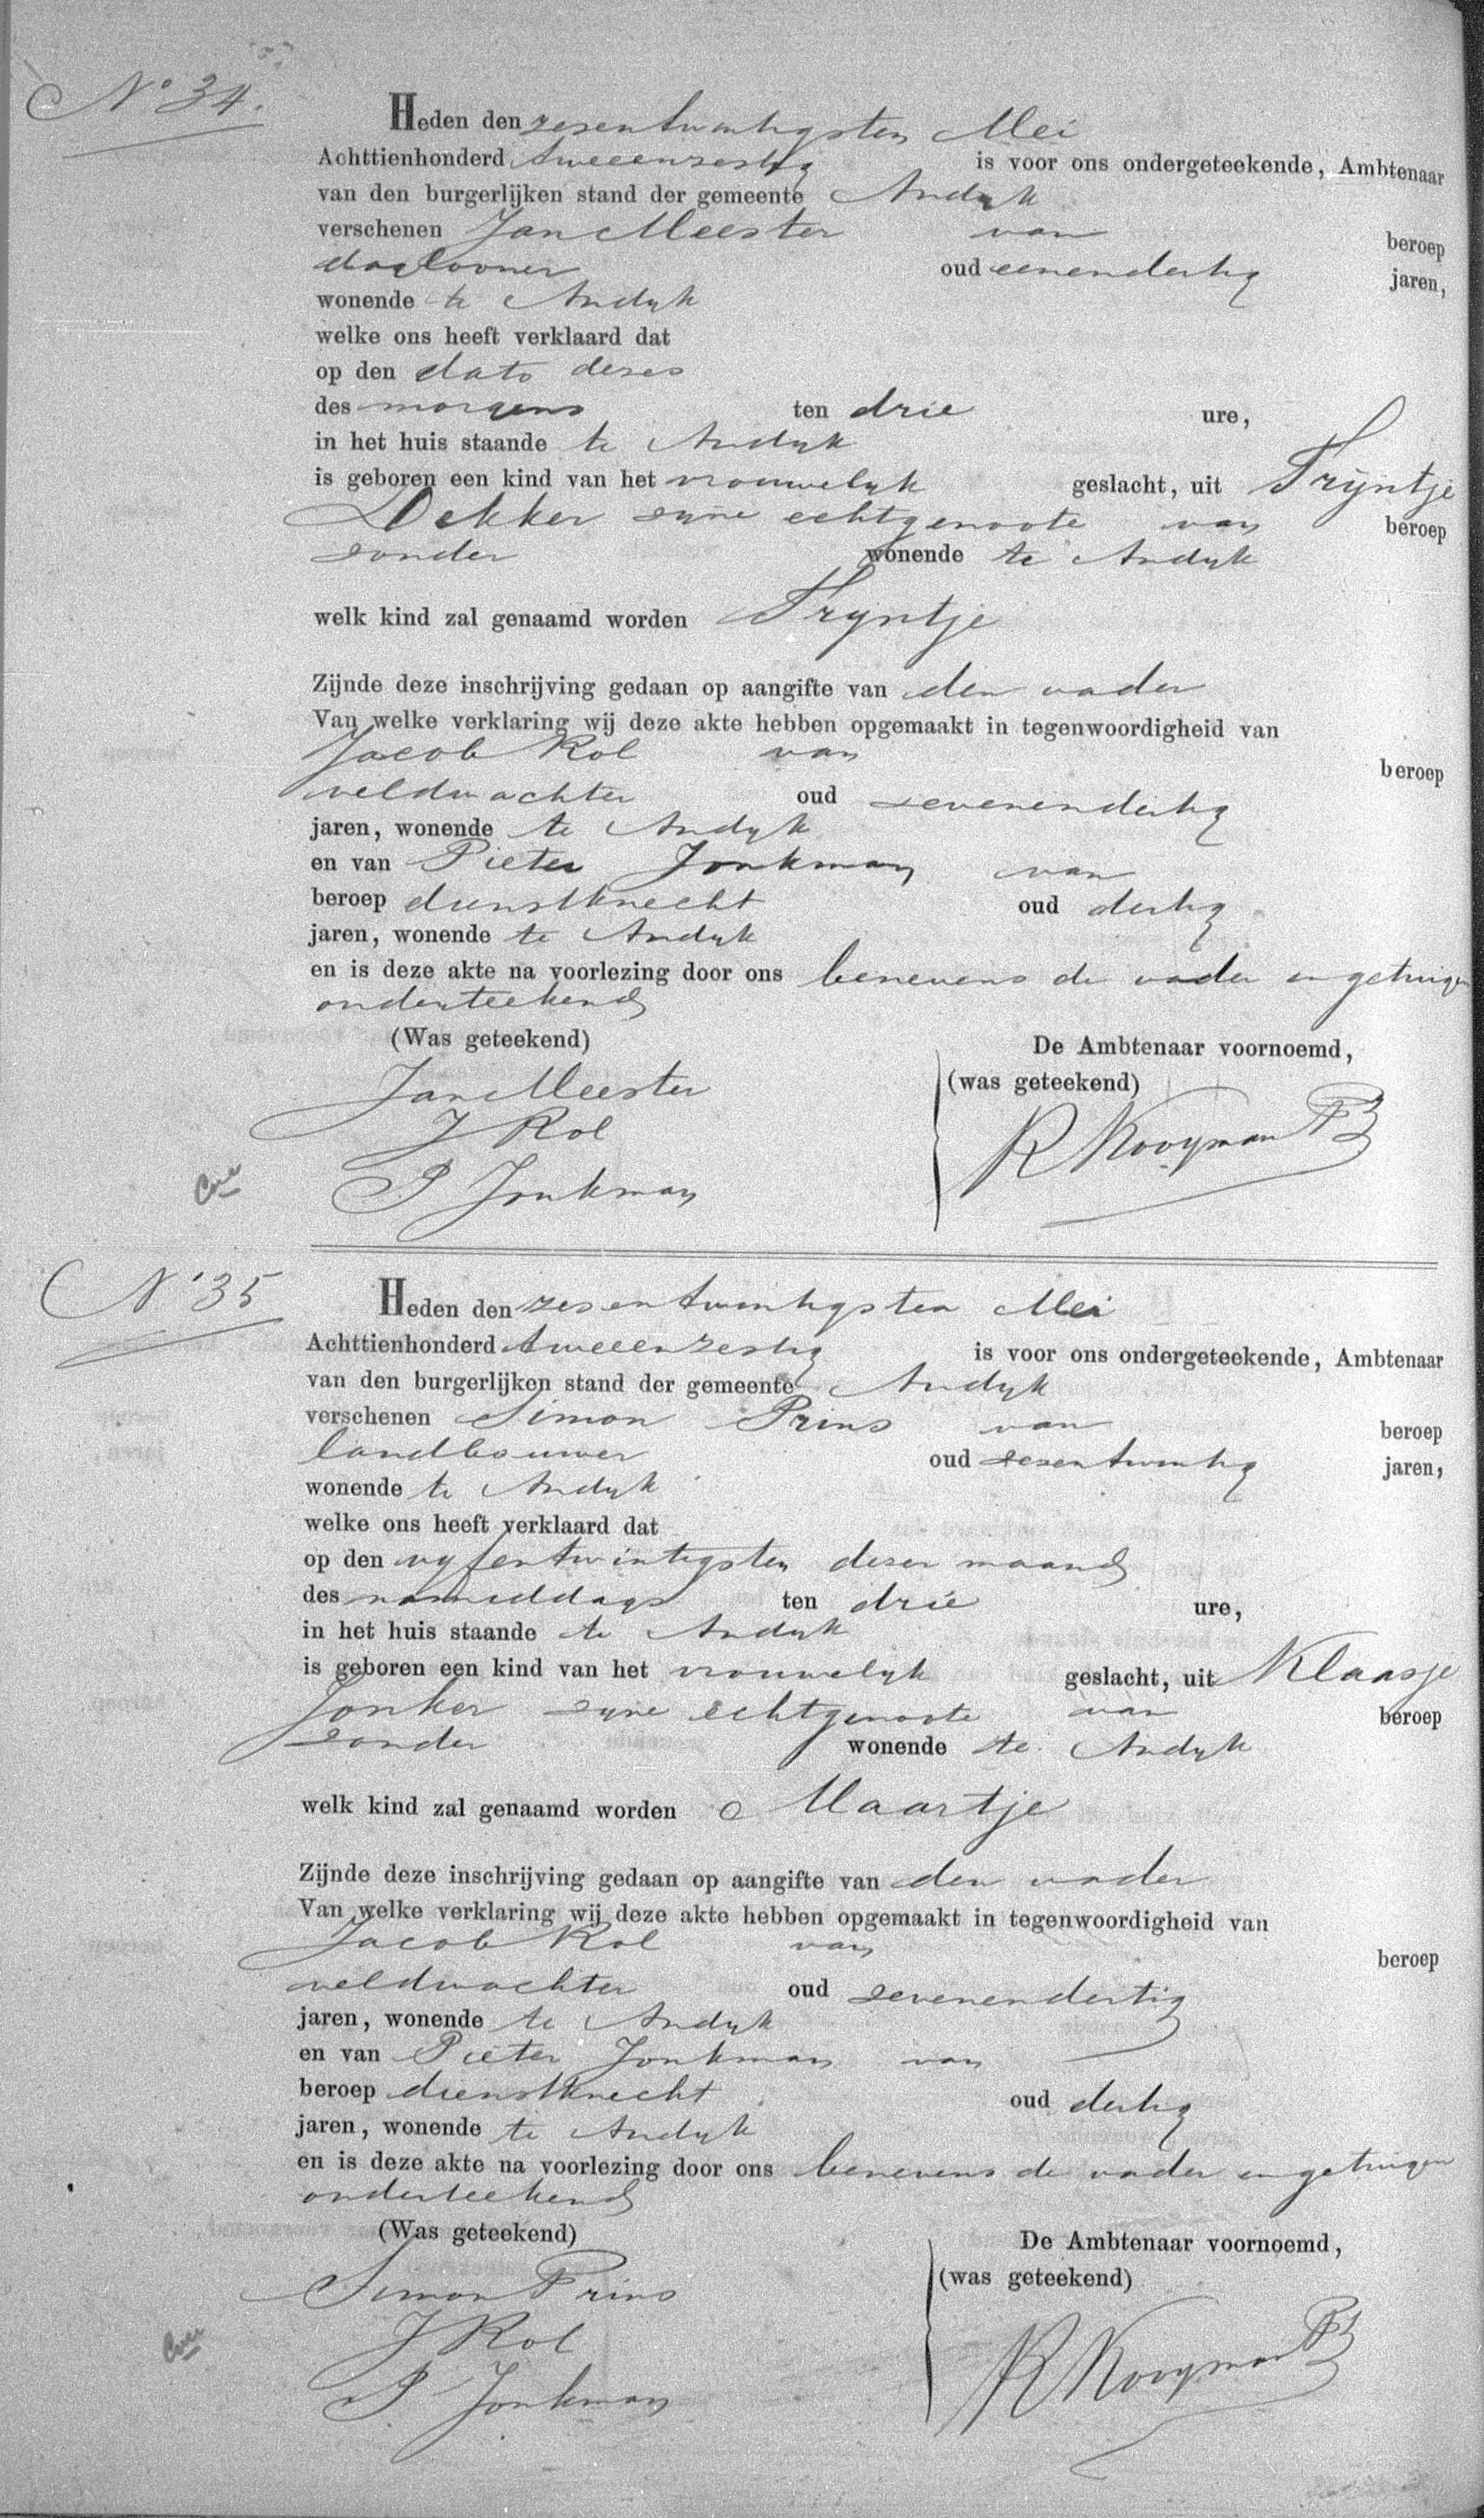 No 34.
Heden den zesentwintigsten Mei
Achttienhonderd tweeenzestig is voor ons ondergeteekende, Ambtenaar
van den burgerlijken stand der gemeente Andijk
verschenen Jan Meester van beroep
daglooner oud eenendertig jaren,
wonende te Andijk
welke ons heeft verklaard dat
op den dato dezes
des morgens ten drie ure,
in het huis staande te Andijk
is geboren een kind van het vrouwelijk geslacht, uit Trijntje
Dekker zijne echtgenoote van beroep
zonder wonende te Andijk
welk kind zal genaamd worden Trijntje
Zijnde deze inschrijving gedaan op aangifte van den vader
Van welke verklaring wij deze akte hebben opgemaakt in tegenwoordigheid van
Jacob Kol van beroep
veldwachter oud zevenendertig
jaren, wonende te Andijk
en van Pieter Jonkman van
beroep dienstknecht oud dertig
jaren, wonende te Andijk
en is deze akte na voorlezing door ons benevens de vader en getuigen
onderteekend
(Was geteekend) De Ambtenaar voornoemd,
(was geteekend)
Jan Meester
J Kol R Kooyman Pz
P Jonkman
No 35
Heden den zesentwintigsten Mei
Achttienhonderd tweeenzestig is voor ons ondergeteekende, Ambtenaar
van den burgerlijken stand der gemeente Andijk
verschenen Simon Prins van beroep
landbouwer oud zesentwintig jaren,
wonende te Andijk
welke ons heeft verklaard dat
op den vyfentwintigsten dezer maand
des namiddags ten drie ure,
in het huis staande te Andijk
is geboren een kind van het vrouwelijk geslacht, uit Klaasje
Jonker zijne echtgenoote van beroep
zonder wonende te Andijk
welk kind zal genaamd worden Maartje
Zijnde deze inschrijving gedaan op aangifte van den vader
Van welke verklaring wij deze akte hebben opgemaakt in tegenwoordigheid van
Jacob Kol van beroep
veldwachter oud zevenendertig
jaren, wonende te Andijk
en van Pieter Jonkman van
beroep dienstknecht oud dertig
jaren, wonende te Andijk
en is deze akte na voorlezing door ons benevens de vader en getuigen
onderteekend
(Was geteekend) De Ambtenaar voornoemd,
(was geteekend)
Simon Prins
J Kol R Kooyman Pz
P Jonkman